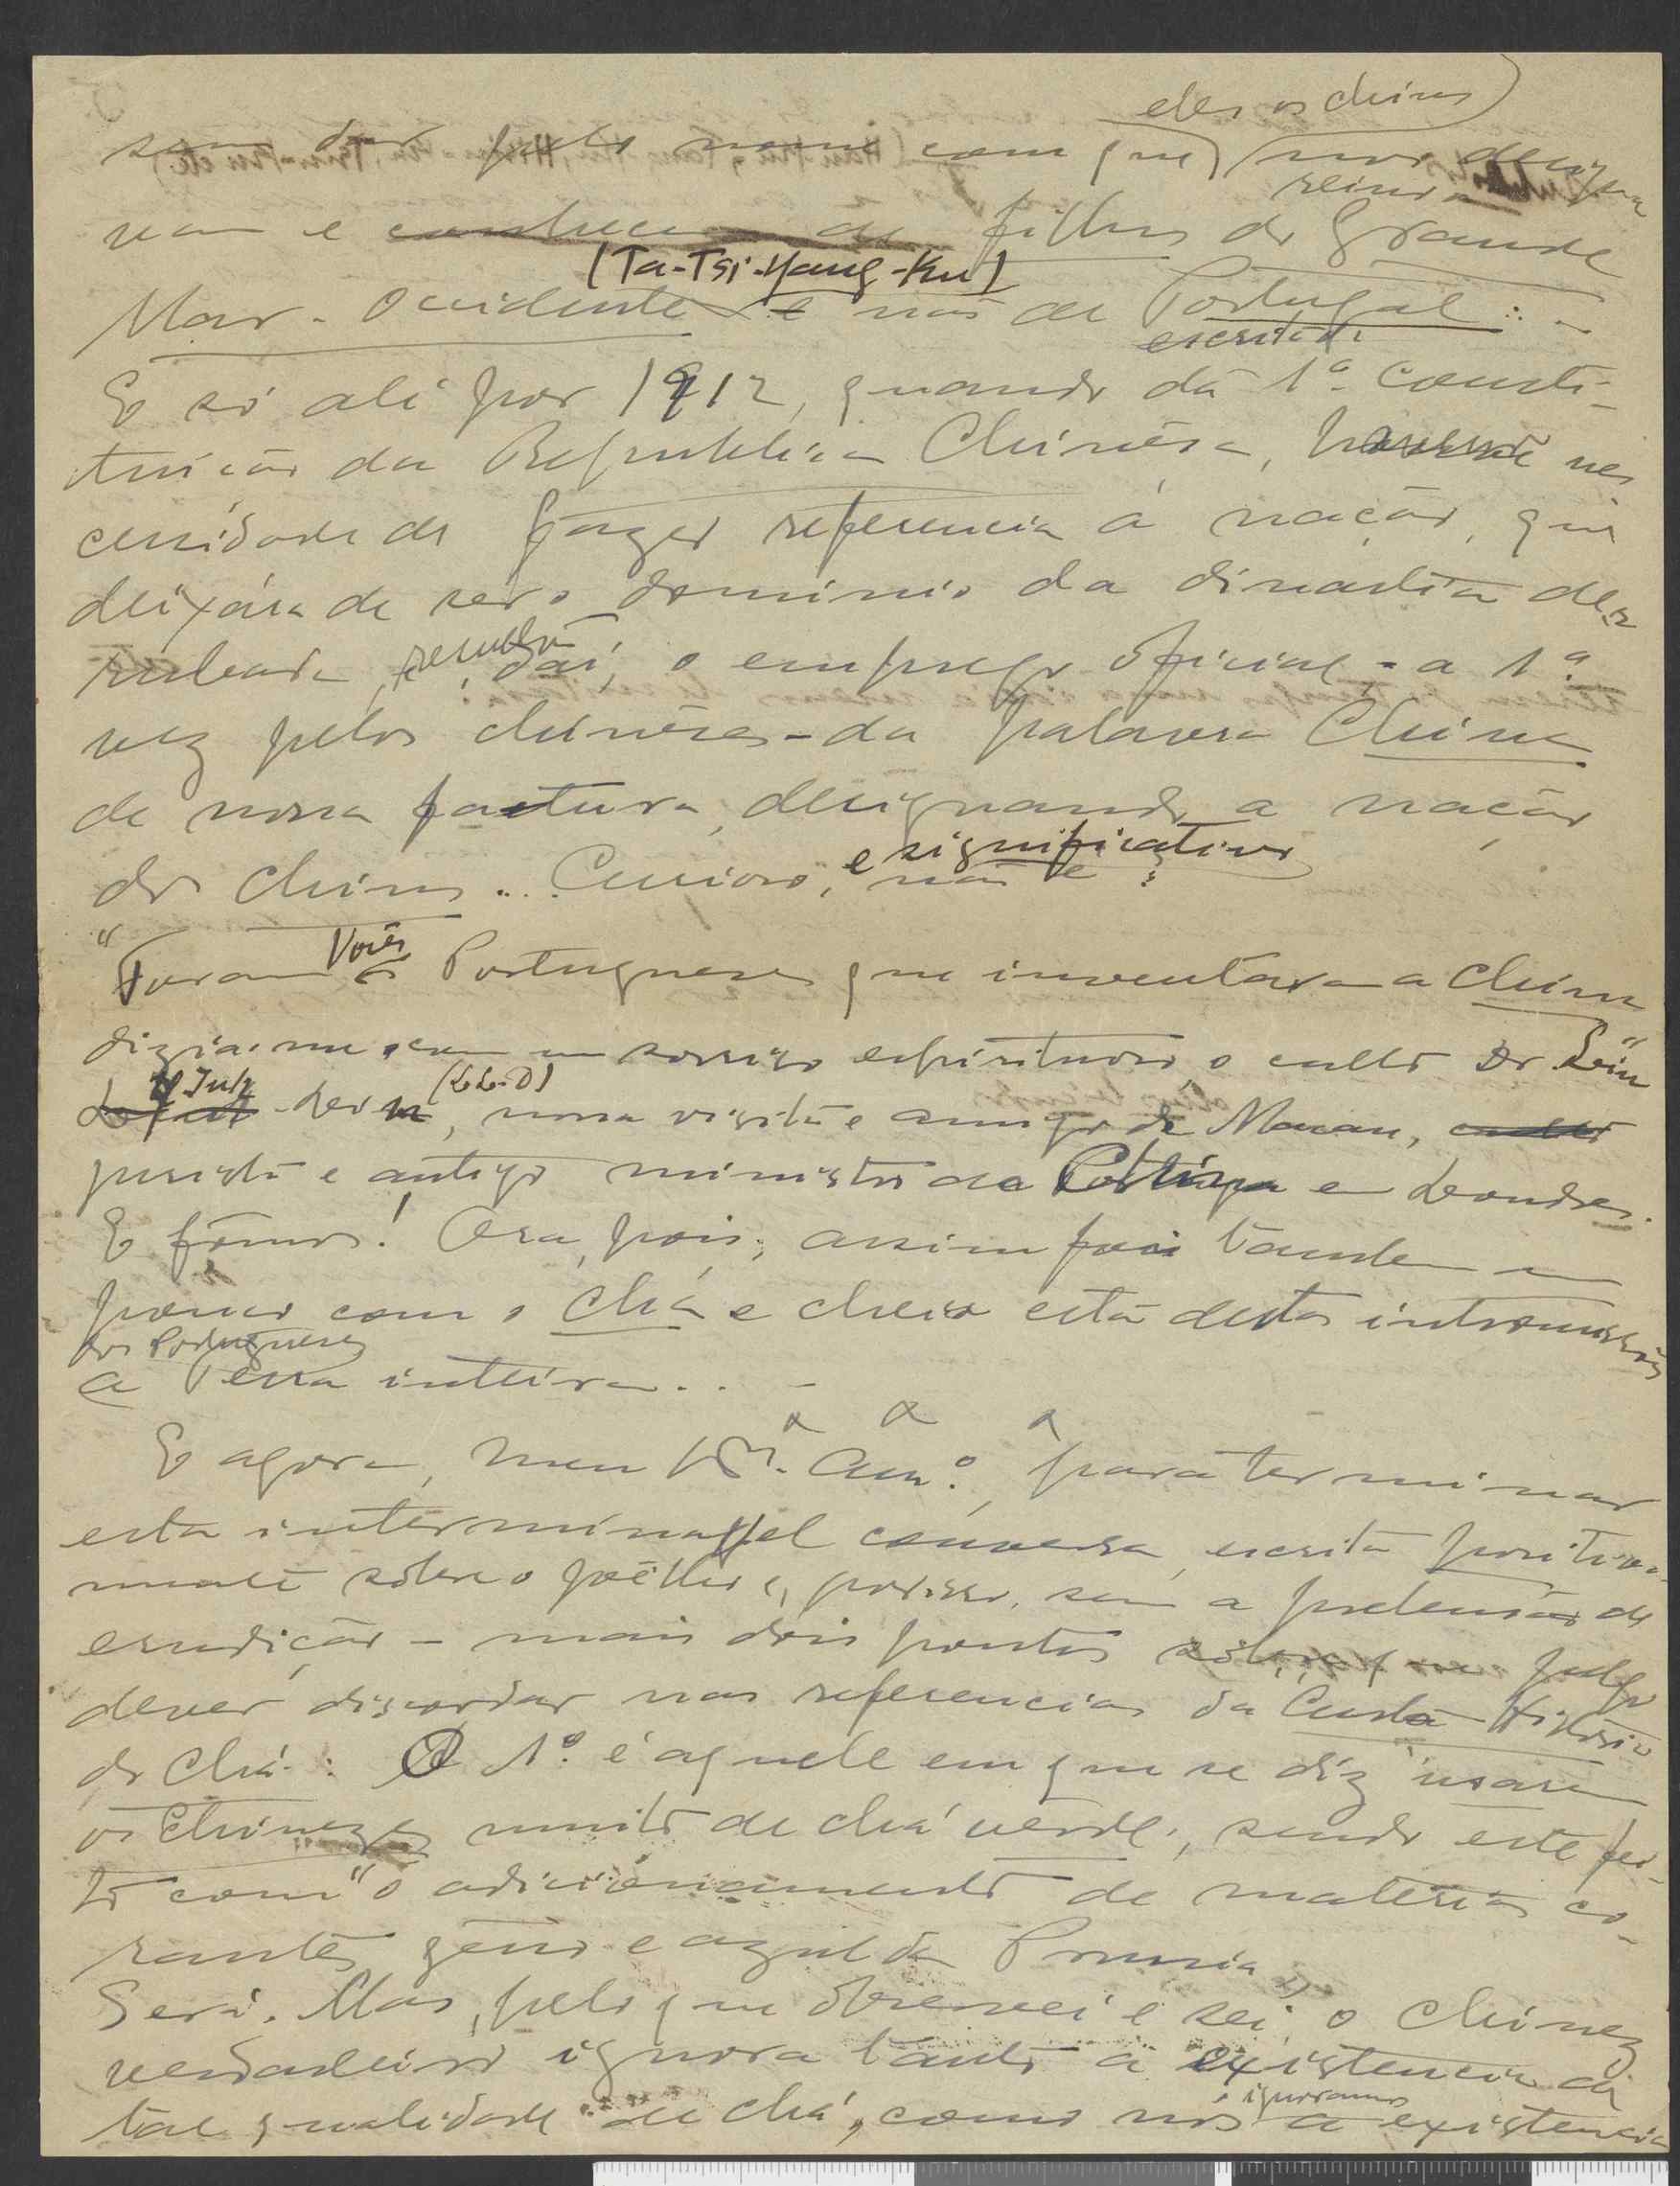 eles os chinas)
com que) nos designa
vam e filhos do reino do Grande
(Ta-Tsi-Yang-Ku)
Mar-Ocidente e não de Portugal...
E só ali por 1912, quando da escrita da 1ª consti-
tuição da Republica Chinêsa, houve ne
cessidade de fazer referencia á nação, que
deixára de ser o dominio da dinastia der
rubada, resultou daí, o emprego oficial - a 1ª
vez pelos chinêses - da palavra China
de nossa factura, designando a nação
dos chinas... Curioso, e significativo não é?
"Foram Vocês Portugueses que inventaram a China"
dizia-me, com um sorriso espirituoso, o culto Dr. Lou
(LL.D), nossa visita e amigo de Macau,
jurista e antigo ministro da em Londres.
E fômos! Ora, pois, assim foi tambem um
pouco com o chá e cheia está destas intromissões
dos Portugueses
a Terra inteira...
E agora, meu Am.º, para terminar
esta interminavel conversa, escrita positiva-
mente sôbre o joêlho e, por isso, sem a pretensão de
erudição - mais dois pontos sôbre que julgo
dever discordar nas referencias da Curta Historia
do Chá: O 1.º é aquele em que se diz "usarem
os Chinezes muito de chá verde", sendo este fei-
to com "o adicionamento de materias co-
rantes, gesso e azul da Prussia".
Será. Mas, pelo que observei e sei, o chinez
verdadeiro ignora tanto a existencia de
tal qualidade de chá, como nós ignoramos a existencia